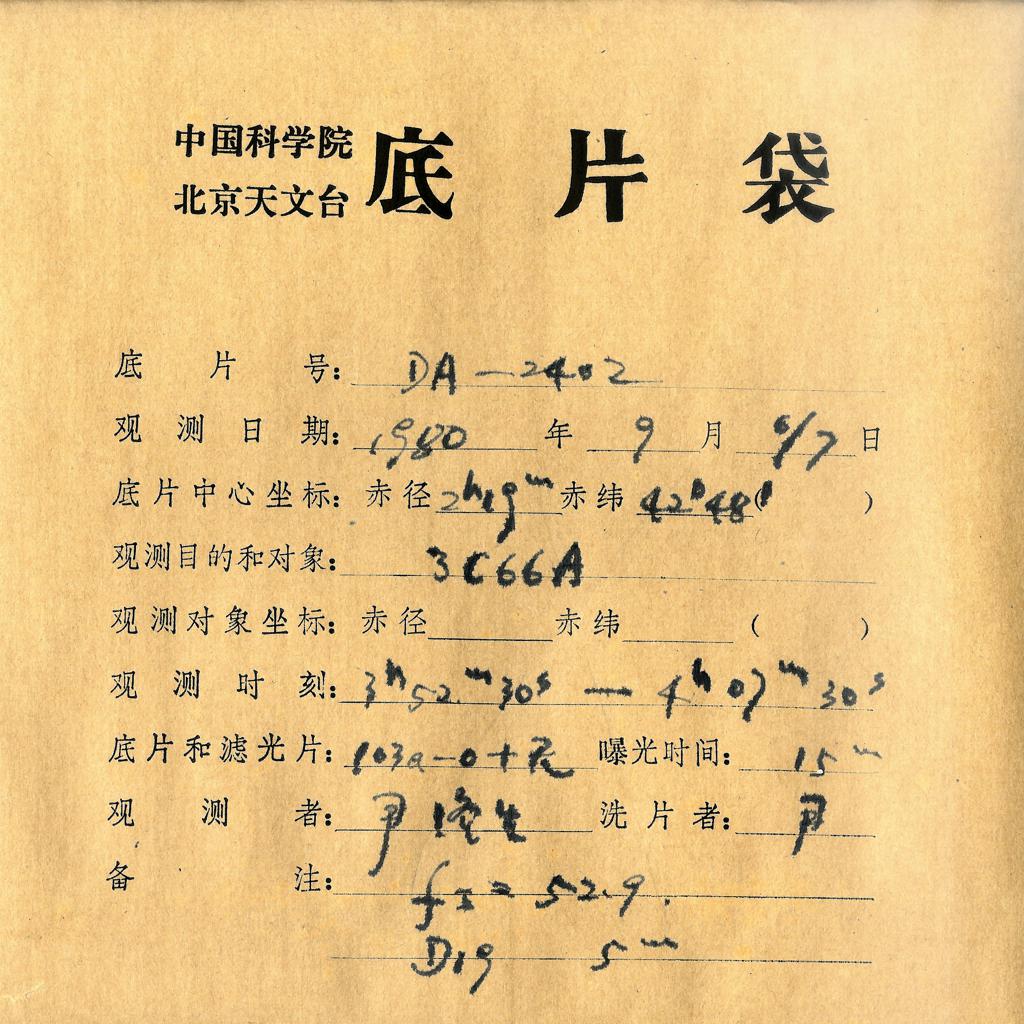 中国科学院
北京天文台 底片袋
底片号: DA-2402
观测日期: 1980年 9月 6/7日
底片中心坐标: 赤径 2h19m 赤纬 42°48′( )
观测目的和对象: 3C66A
观测对象坐标: 赤径 赤纬 ( )
观测时刻: 3h52m30s — 4h07m30s
底片和滤光片: 103a-O+ 曝光时间: 15m
观测者: 尹 生 洗片者: 尹
备注: = 52.9.
D19 5m